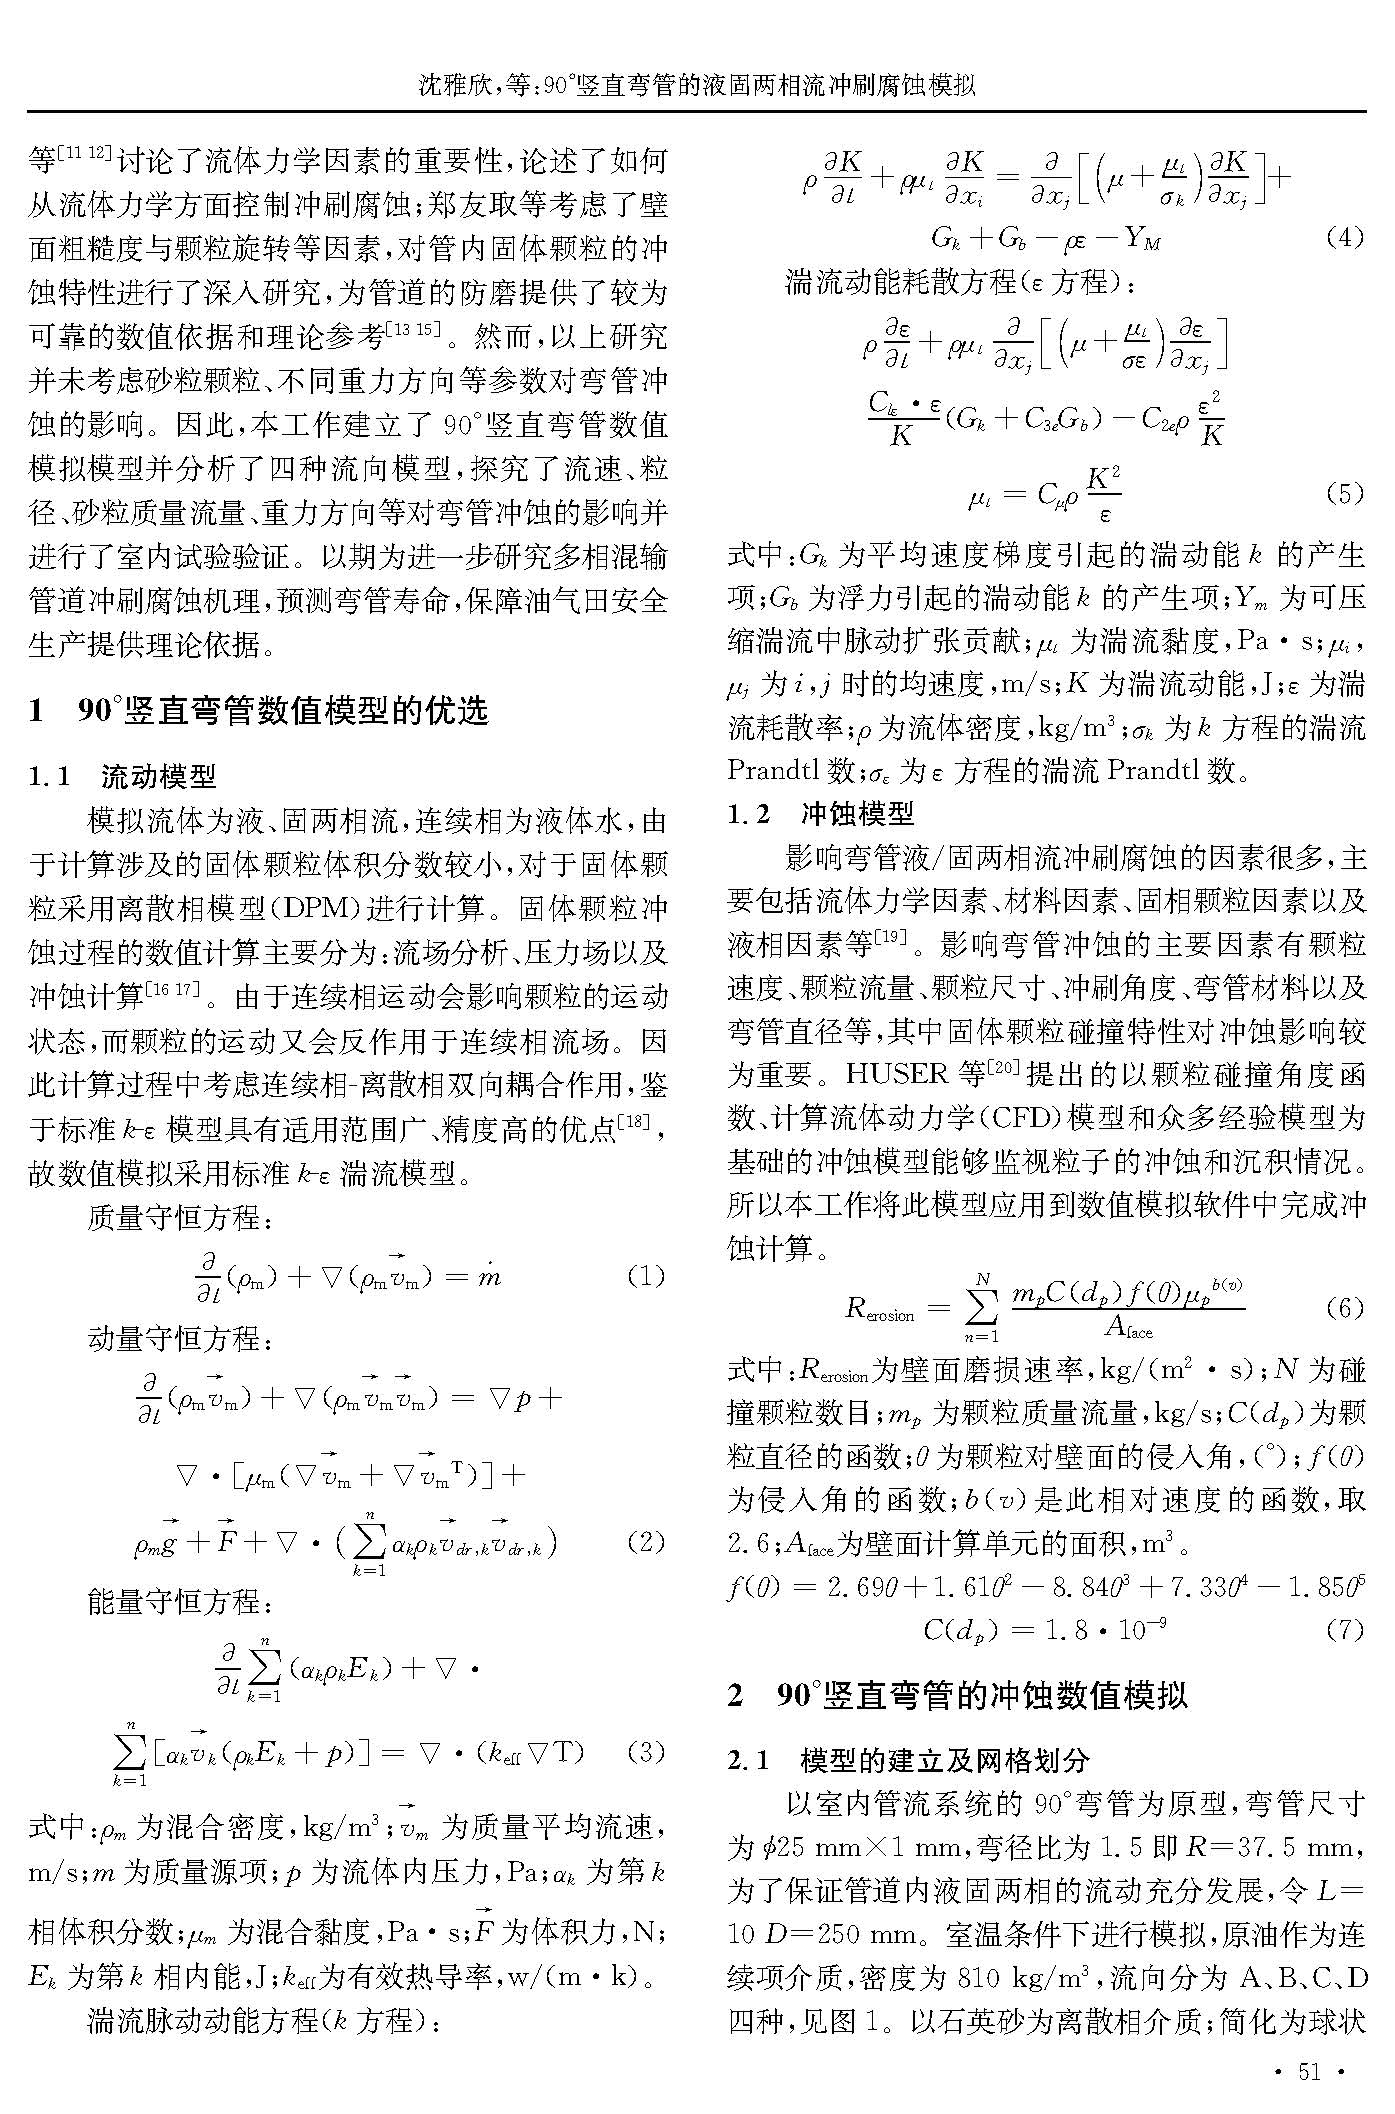 沈雅欣,等:90°竖直弯管的液固两相流冲刷腐蚀模拟
等[11 12]讨论了流体力学因素的重要性,论述了如何
从流体力学方面控制冲刷腐蚀;郑友取等考虑了壁
面粗糙度与颗粒旋转等因素,对管内固体颗粒的冲
蚀特性进行了深入研究,为管道的防磨提供了较为
可靠的数值依据和理论参考[13 15]。然而,以上研究
并未考虑砂粒颗粒、不同重力方向等参数对弯管冲
蚀的影响。因此,本工作建立了 90°竖直弯管数值
模拟模型并分析了四种流向模型,探究了流速、粒
径、砂粒质量流量、重力方向等对弯管冲蚀的影响并
进行了室内试验验证。以期为进一步研究多相混输
管道冲刷腐蚀机理,预测弯管寿命,保障油气田安全
生产提供理论依据。
1 90°竖直弯管数值模型的优选
1.1 流动模型
模拟流体为液、固两相流,连续相为液体水,由
于计算涉及的固体颗粒体积分数较小,对于固体颗
粒采用离散相模型(DPM)进行计算。固体颗粒冲
蚀过程的数值计算主要分为:流场分析、压力场以及
冲蚀计算[16 17]。由于连续相运动会影响颗粒的运动
状态,而颗粒的运动又会反作用于连续相流场。因
此计算过程中考虑连续相-离散相双向耦合作用,鉴
于标准 k-ε 模型具有适用范围广、精度高的优点[18],
故数值模拟采用标准 k-ε 湍流模型。
质量守恒方程:
∂/∂t(ρₘ)+▽(ρₘv⃗ₘ)=ṁ (1)
动量守恒方程:
∂/∂t(ρₘv⃗ₘ)+▽(ρₘv⃗ₘv⃗ₘ)=▽p+
▽·[μₘ(▽v⃗ₘ+▽v⃗ₘᵀ)]+
ρₘg⃗+F⃗+▽·(∑_{k=1}^{n} α_kρ_kv⃗_{dr,k}v⃗_{dr,k}) (2)
能量守恒方程:
∂/∂t ∑_{k=1}^{n}(α_kρ_kE_k)+▽·
∑_{k=1}^{n}[α_kv⃗_k(ρ_kE_k+p)]=▽·(k_eff▽T) (3)
式中:ρₘ 为混合密度,kg/m³;v⃗ₘ 为质量平均流速,
m/s;m 为质量源项;p 为流体内压力,Pa;α_k 为第 k
相体积分数;μₘ 为混合黏度,Pa·s;F⃗ 为体积力,N;
E_k 为第 k 相内能,J;k_eff为有效热导率,w/(m·k)。
湍流脉动动能方程(k 方程):
ρ ∂K/∂t+ρμ_t ∂K/∂x_i=∂/∂x_j[(μ+μ_t/σ_k)∂K/∂x_j]+
G_k+G_b-ρε-Y_M (4)
湍流动能耗散方程(ε 方程):
ρ ∂ε/∂t+ρμ_t ∂/∂x_j[(μ+μ_t/σε)∂ε/∂x_j]
C_{lε}·ε/K(G_k+C_{3e}G_b)-C_{2e}ρ ε²/K
μ_t=C_μρ K²/ε (5)
式中:G_k 为平均速度梯度引起的湍动能 k 的产生
项;G_b 为浮力引起的湍动能 k 的产生项;Y_m 为可压
缩湍流中脉动扩张贡献;μ_t 为湍流黏度,Pa·s;μ_i,
μ_j 为 i,j 时的均速度,m/s;K 为湍流动能,J;ε 为湍
流耗散率;ρ 为流体密度,kg/m³;σ_k 为 k 方程的湍流
Prandtl 数;σ_ε 为 ε 方程的湍流 Prandtl 数。
1.2 冲蚀模型
影响弯管液/固两相流冲刷腐蚀的因素很多,主
要包括流体力学因素、材料因素、固相颗粒因素以及
液相因素等[19]。影响弯管冲蚀的主要因素有颗粒
速度、颗粒流量、颗粒尺寸、冲刷角度、弯管材料以及
弯管直径等,其中固体颗粒碰撞特性对冲蚀影响较
为重要。HUSER 等[20]提出的以颗粒碰撞角度函
数、计算流体动力学(CFD)模型和众多经验模型为
基础的冲蚀模型能够监视粒子的冲蚀和沉积情况。
所以本工作将此模型应用到数值模拟软件中完成冲
蚀计算。
R_erosion=∑_{n=1}^{N} m_pC(d_p)f(θ)μ_p^{b(v)}/A_face (6)
式中:R_erosion为壁面磨损速率,kg/(m²·s);N 为碰
撞颗粒数目;m_p 为颗粒质量流量,kg/s;C(d_p)为颗
粒直径的函数;θ 为颗粒对壁面的侵入角,(°);f(θ)
为侵入角的函数;b(v)是此相对速度的函数,取
2.6;A_face为壁面计算单元的面积,m³。
f(θ)=2.69θ+1.61θ²-8.84θ³+7.33θ⁴-1.85θ⁵
C(d_p)=1.8·10⁻⁹ (7)
2 90°竖直弯管的冲蚀数值模拟
2.1 模型的建立及网格划分
以室内管流系统的 90°弯管为原型,弯管尺寸
为 ϕ25 mm×1 mm,弯径比为 1.5 即 R=37.5 mm,
为了保证管道内液固两相的流动充分发展,令 L=
10 D=250 mm。室温条件下进行模拟,原油作为连
续项介质,密度为 810 kg/m³,流向分为 A、B、C、D
四种,见图 1。以石英砂为离散相介质;简化为球状
· 51 ·